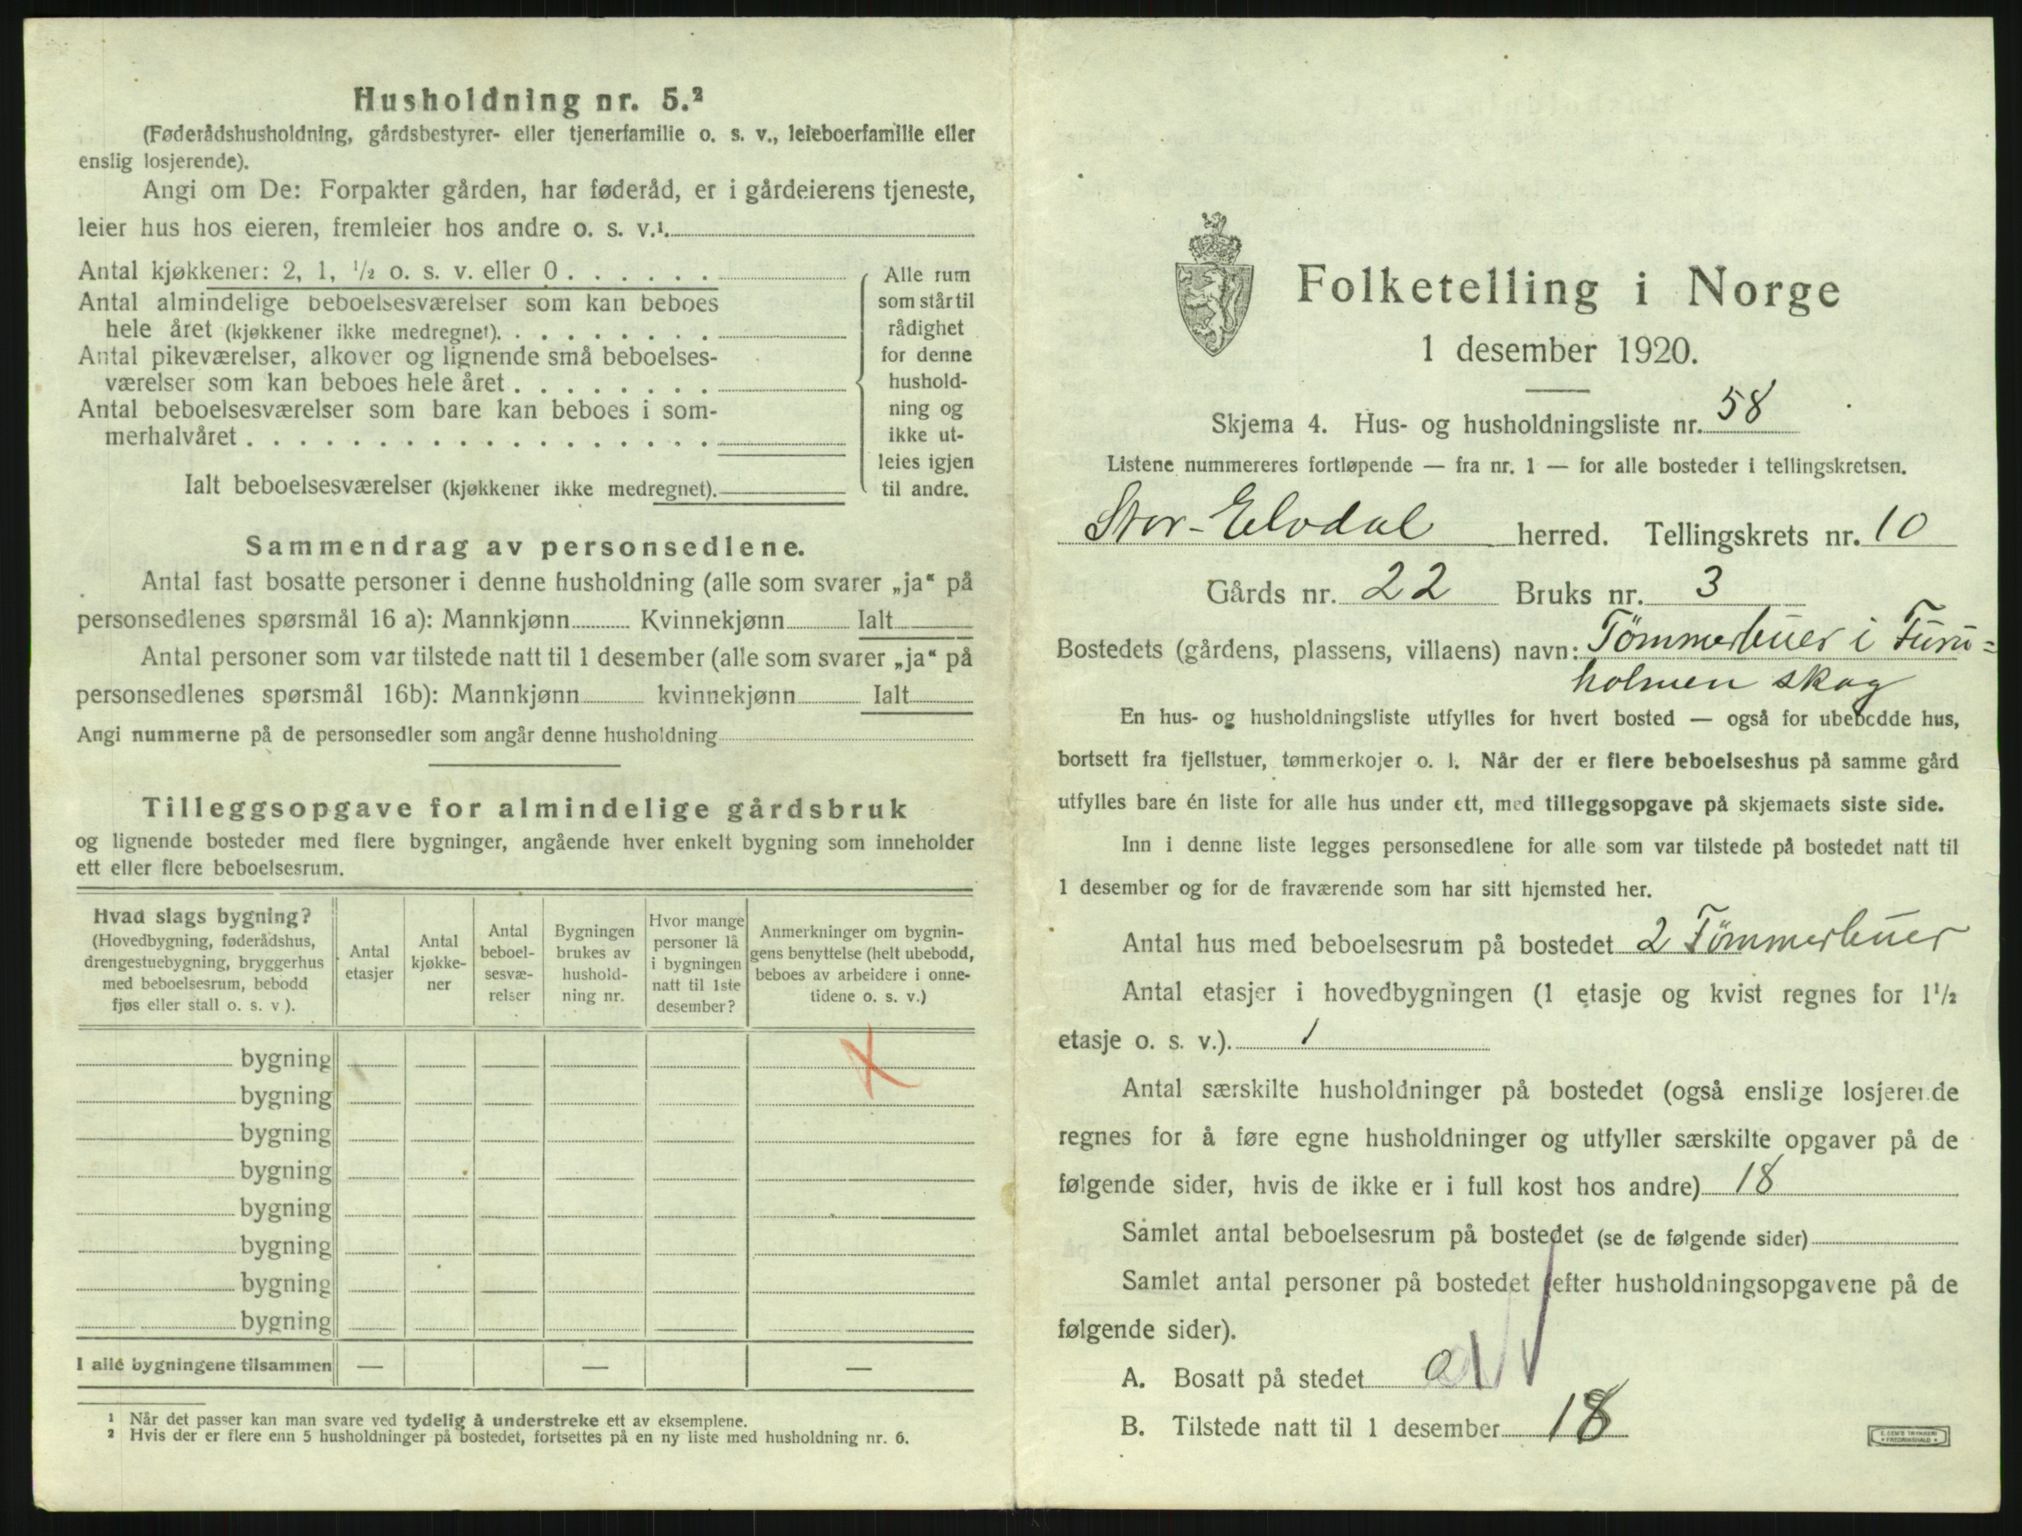 Husholdning nr. 5.²
(Føderådshusholdning, gårdsbestyrer- eller tjenerfamilie o. s. v., leieboerfamilie eller
enslig losjerende).
Angi om De: Forpakter gården, har føderåd, er i gårdeierens tjeneste,
leier hus hos eieren, fremleier hos andre o. s. v.¹.
Antal kjøkkener: 2, 1, ½ o. s. v. eller 0 . . . . . .
Antal almindelige beboelsesværelser som kan beboes
hele året (kjøkkener ikke medregnet). . . . . . . . .
Antal pikeværelser, alkover og lignende små beboelses-
værelser som kan beboes hele året . . . . . . . .
Antal beboelsesværelser som bare kan beboes i som-
merhalvåret . . . . . . . . . . . . . . . . . .
Ialt beboelsesværelser (kjøkkener ikke medregnet).
Alle rum
som står til
rådighet
for denne
hushold-
ning og
ikke ut-
leies igjen
til andre.
Sammendrag av personsedlene.
Antal fast bosatte personer i denne husholdning (alle som svarer „ja“ på
personsedlenes spørsmål 16 a): Mannkjønn Kvinnekjønn Ialt
Antal personer som var tilstede natt til 1 desember (alle som svarer „ja“ på
personsedlenes spørsmål 16b): Mannkjønn kvinnekjønn Ialt
Angi nummerne på de personsedler som angår denne husholdning
Tilleggsopgave for almindelige gårdsbruk
og lignende bosteder med flere bygninger, angående hver enkelt bygning som inneholder
ett eller flere beboelsesrum.
Hvad slags bygning?
(Hovedbygning, føderådshus,
drengestuebygning, bryggerhus
med beboelsesrum, bebodd
fjøs eller stall o. s. v ).
Antal
etasjer
Antal
kjøkke-
ner
Antal
beboel-
sesvæ-
relser
Bygningen
brukes av
hushold-
ning nr.
Hvor mange
personer lå
i bygningen
natt til 1ste
desember?
Anmerkninger om bygnin-
gens benyttelse (helt ubebodd,
beboes av arbeidere i onne-
tidene o. s. v.)
bygning
bygning
bygning
bygning
bygning
bygning
bygning
bygning
I alle bygningene tilsammen — — —
¹ Når det passer kan man svare ved tydelig å understreke ett av eksemplene.
² Hvis der er flere enn 5 husholdninger på bostedet, fortsettes på en ny liste med husholdning nr. 6.
Folketelling i Norge
1 desember 1920.
Skjema 4. Hus- og husholdningsliste nr. 58
Listene nummereres fortløpende — fra nr. 1 — for alle bosteder i tellingskretsen.
Stor-Elvdal herred. Tellingskrets nr. 10
Gårds nr. 22 Bruks nr. 3
Bostedets (gårdens, plassens, villaens) navn: Tømmerbuer i Furu=
holmen skog
En hus- og husholdningsliste utfylles for hvert bosted — også for ubebodde hus,
bortsett fra fjellstuer, tømmerkojer o. l. Når der er flere beboelseshus på samme gård
utfylles bare én liste for alle hus under ett, med tilleggsopgave på skjemaets siste side.
Inn i denne liste legges personsedlene for alle som var tilstede på bostedet natt til
1 desember og for de fraværende som har sitt hjemsted her.
Antal hus med beboelsesrum på bostedet 2 Tømmerbuer
Antal etasjer i hovedbygningen (1 etasje og kvist regnes for 1½
etasje o. s. v.). 1
Antal særskilte husholdninger på bostedet (også enslige losjerende
regnes for å føre egne husholdninger og utfyller særskilte opgaver på de
følgende sider, hvis de ikke er i full kost hos andre) 18
Samlet antal beboelsesrum på bostedet (se de følgende sider)
Samlet antal personer på bostedet (efter husholdningsopgavene på de
følgende sider).
A. Bosatt på stedet 0
B. Tilstede natt til 1 desember 18